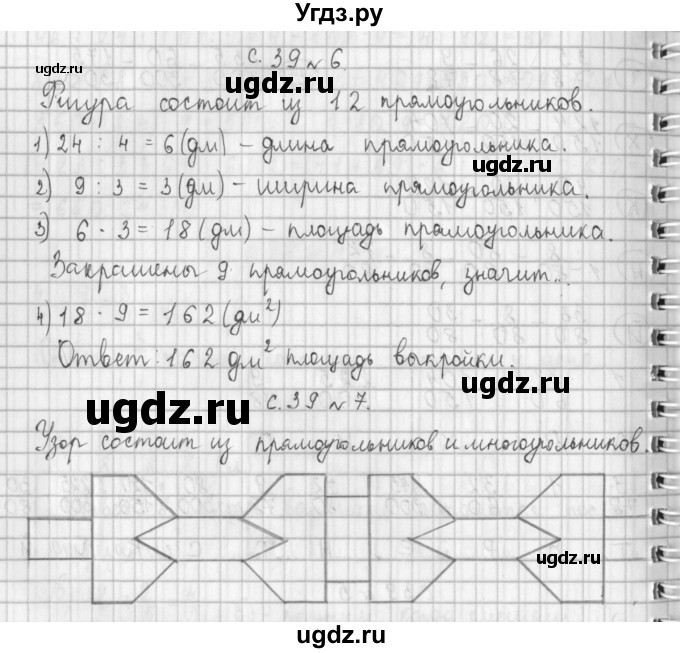 Угдз.ру
с. 39 № 6.
ugdz.ru
ugdz.ru
Фигура состоит из 12 прямоугольников.
ugdz.ru
1) 24 : 4 = 6 (дм) – длина прямоугольника.
ugdz.ru
2) 9 : 3 = 3 (дм) – ширина прямоугольника.
3) 6 · 3 = 18 (дм) – площадь прямоугольника.
ugdz.ru
Закрашены 9 прямоугольников, значит...
4) 18 · 9 = 162 (дм²)
ugdz.ru
Ответ: 162 дм² площадь выкройки.
ugdz.ru
ugdz.ru
с. 39 № 7.
Узор состоит из прямоугольников и многоугольников.
ugdz.ru
ugdz.ru
ugdz.ru